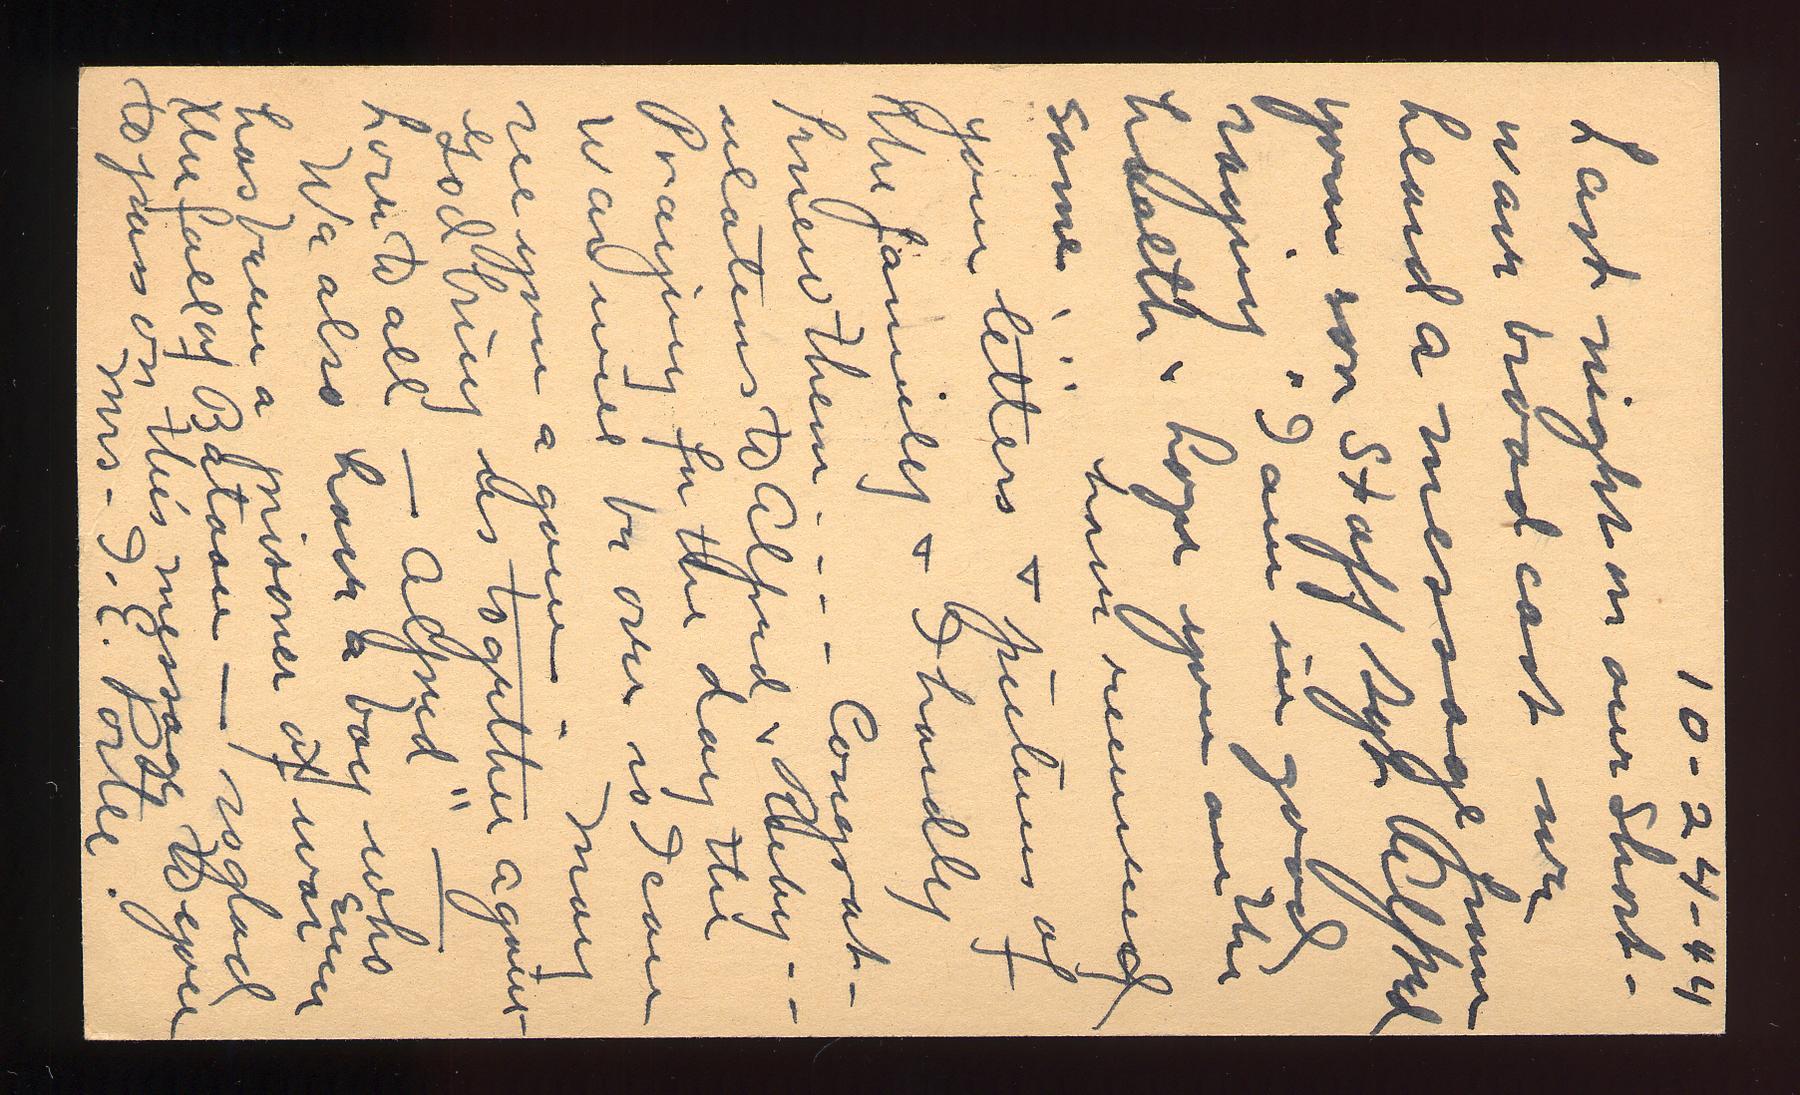 10-24-44
Last night on our Short-
wave broad cast we
heard a message from
your son Staff Sgt Alfred
saying. "I am in good
health & hope you are the
same!" have received
your letters & pictures of
the family & I hardly
knew them --- Congrat-
ulations to Alfred & Ruby --
Praying for the day the
war will be over so I can
see you again. May
God bring us together again
Love to all — Alfred" —
We also have a boy who
has been a prisoner of war ever
since fall of Bataan — so glad
to pass on this message to you
Mrs. I. E. Orte.